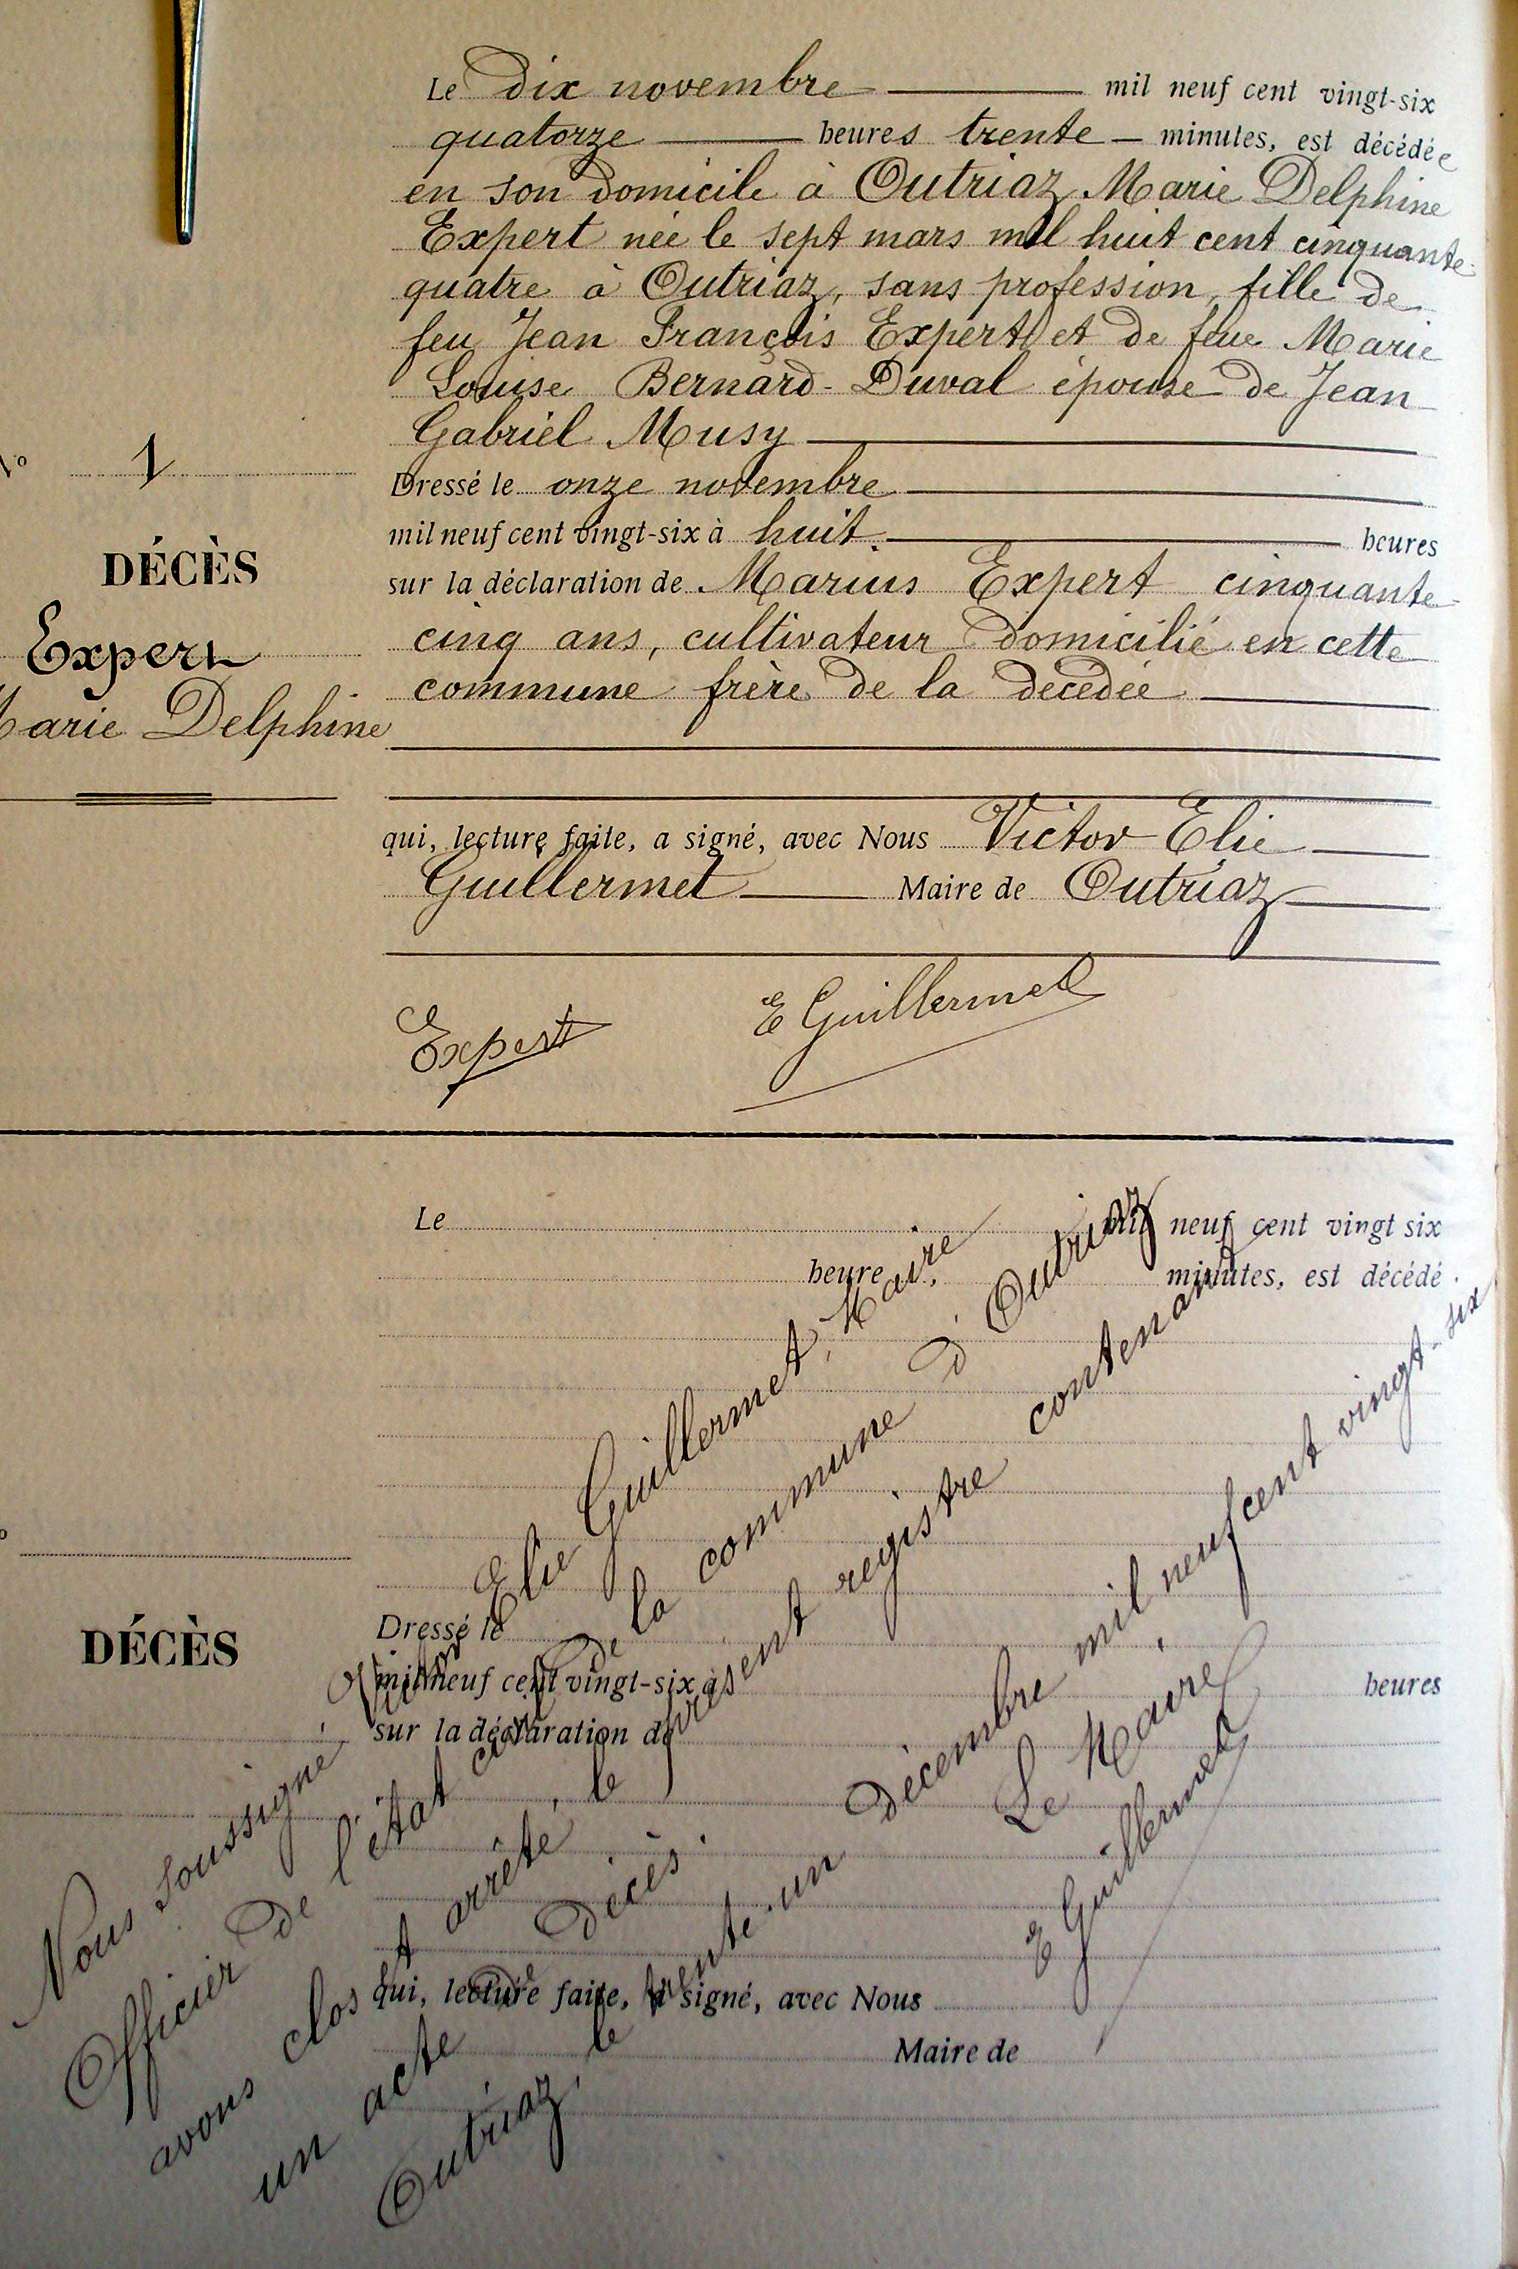 Le dix novembre mil neuf cent vingt-six
quatorze heures trente minutes, est décédée
en son domicile à Outriaz Marie Delphine
Expert née le sept mars mil huit cent cinquante-
quatre à Outriaz, sans profession, fille de
feu Jean François Expert et de feue Marie
Louise Bernard-Duval épouse de Jean
Gabriel Musy
N° 1
DÉCÈS
Expert
Marie Delphine
Dressé le onze novembre
mil neuf cent vingt-six à huit heures
sur la déclaration de Marius Expert cinquante-
cinq ans, cultivateur domicilié en cette
commune frère de la décédée
qui, lecture faite, a signé, avec Nous Victor Elie
Guillermet Maire de Outriaz
Expert E Guillermet
Le mil neuf cent vingt six
heure minutes, est décédé
DÉCÈS
Dressé le
mil neuf cent vingt-six à heures
sur la déclaration de
qui, lecture faite, a signé, avec Nous
Maire de
Nous soussigné Victor Elie Guillermet, Maire,
Officier de l'état civil de la commune d'Outriaz
avons clos et arrêté le présent registre contenant
un acte de décès.
Outriaz, le trente-un décembre mil neuf cent vingt-six
Le Maire,
E Guillermet